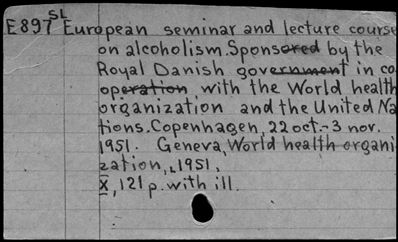 SL
E897 European seminar and lecture course
on alcoholism. Sponsored by the
Royal Danish government in co
operation, with the World health
organization and the United Na
tions. Copenhagen, 22 oct.-3 nov.
1951. Geneva, World health organi
zation, 1951.
x, 121 p. with ill.